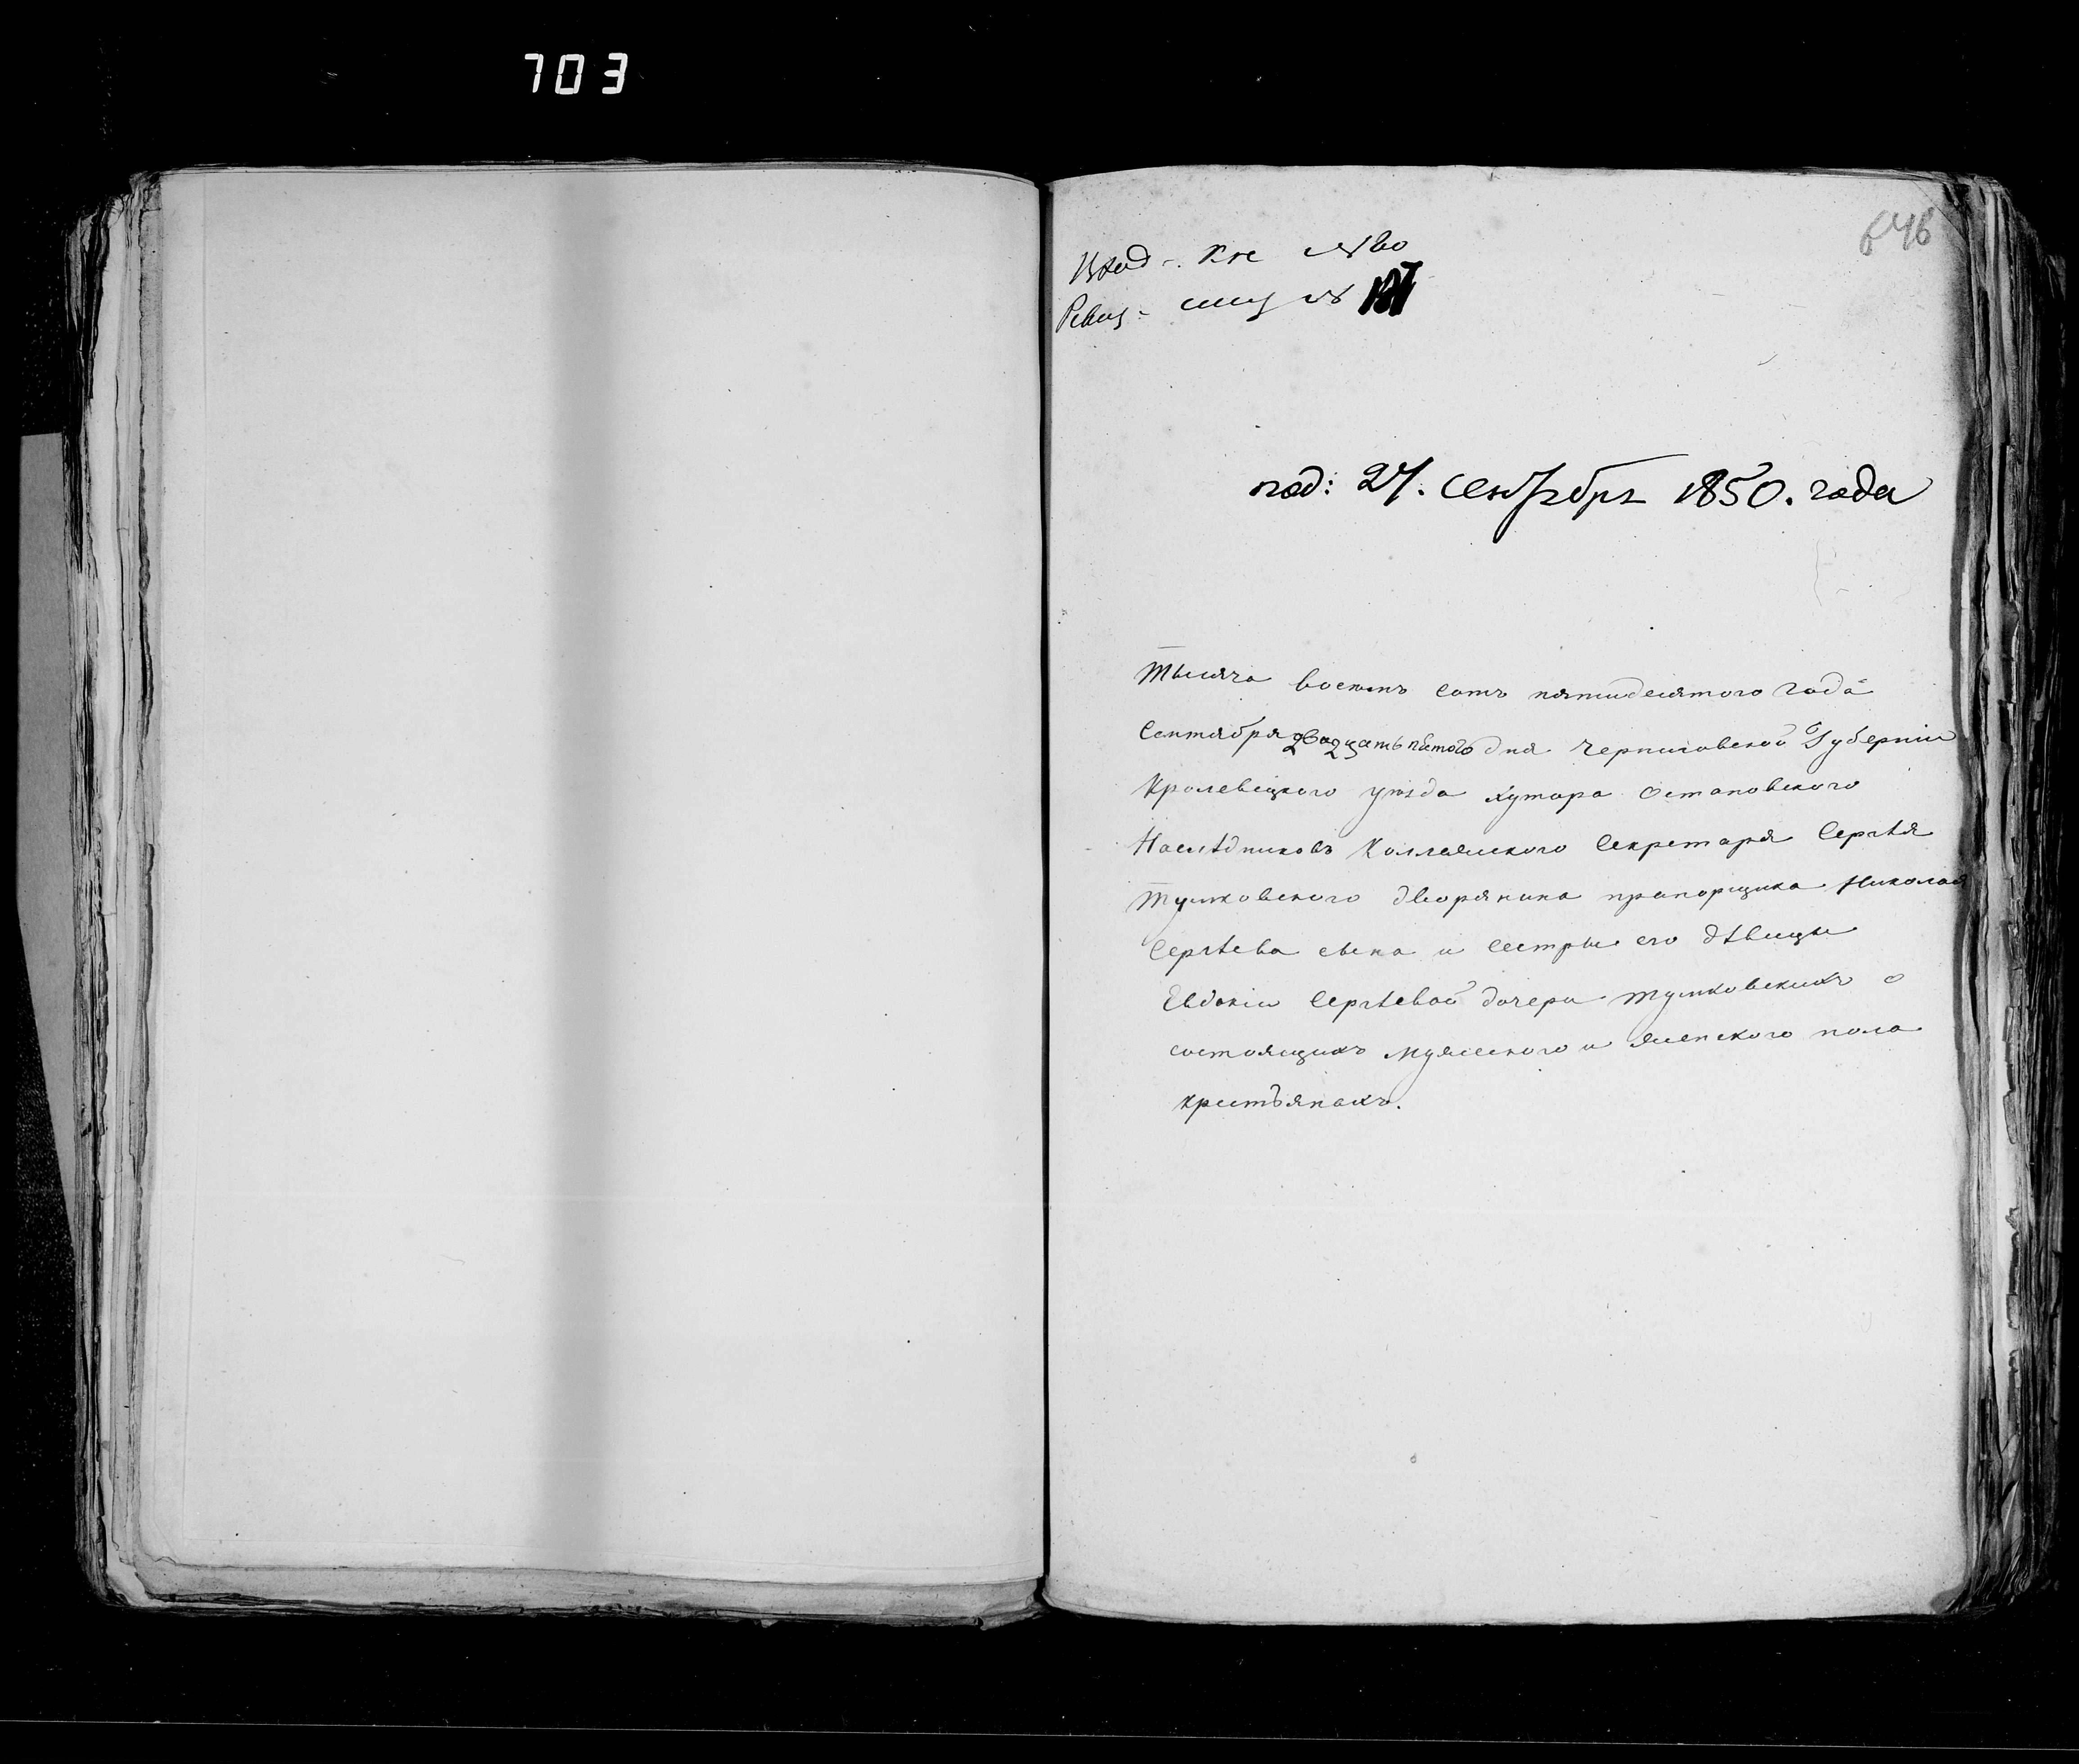 703
646
Вход. Кн № 60
Ревиз. спис №
под: 27. Сентября 1850. года
Тысяча восемь сотъ пятидесятого года
Сентября двадцать пятого дня Черниговской Губерніи
Кролевецкого уѣзда хутора Остановского
Наслѣдниковъ Коллежского Секретаря Сергѣя
дворянина прапорщика Николая
Сергѣева сына и Сестры его дѣвицы
Евдокіи Сергѣевой дочери о
состоящихъ мужеского и женского пола
крестьянахъ.